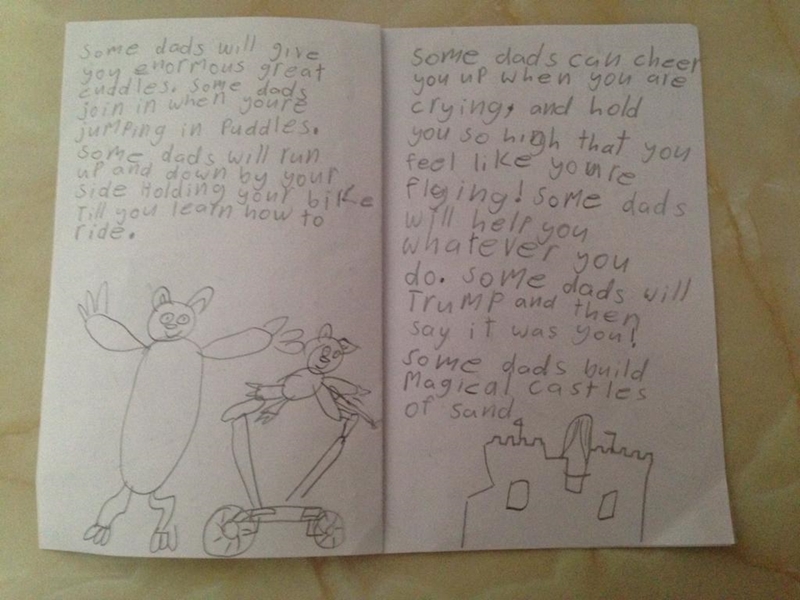 Some dads will give
you enormous great
cuddles. Some dads
join in when you're
jumping in Puddles.
Some dads will run
up and down by your
side Holding your bike
Till you learn how to
ride.
Some dads can cheer
you up when you are
crying, and hold
you so high that you
feel like you're
flying! Some dads
will help you
whatever you
do. Some dads will
TruMP and then
say it was you!
Some dads build
Magical castles
of sand